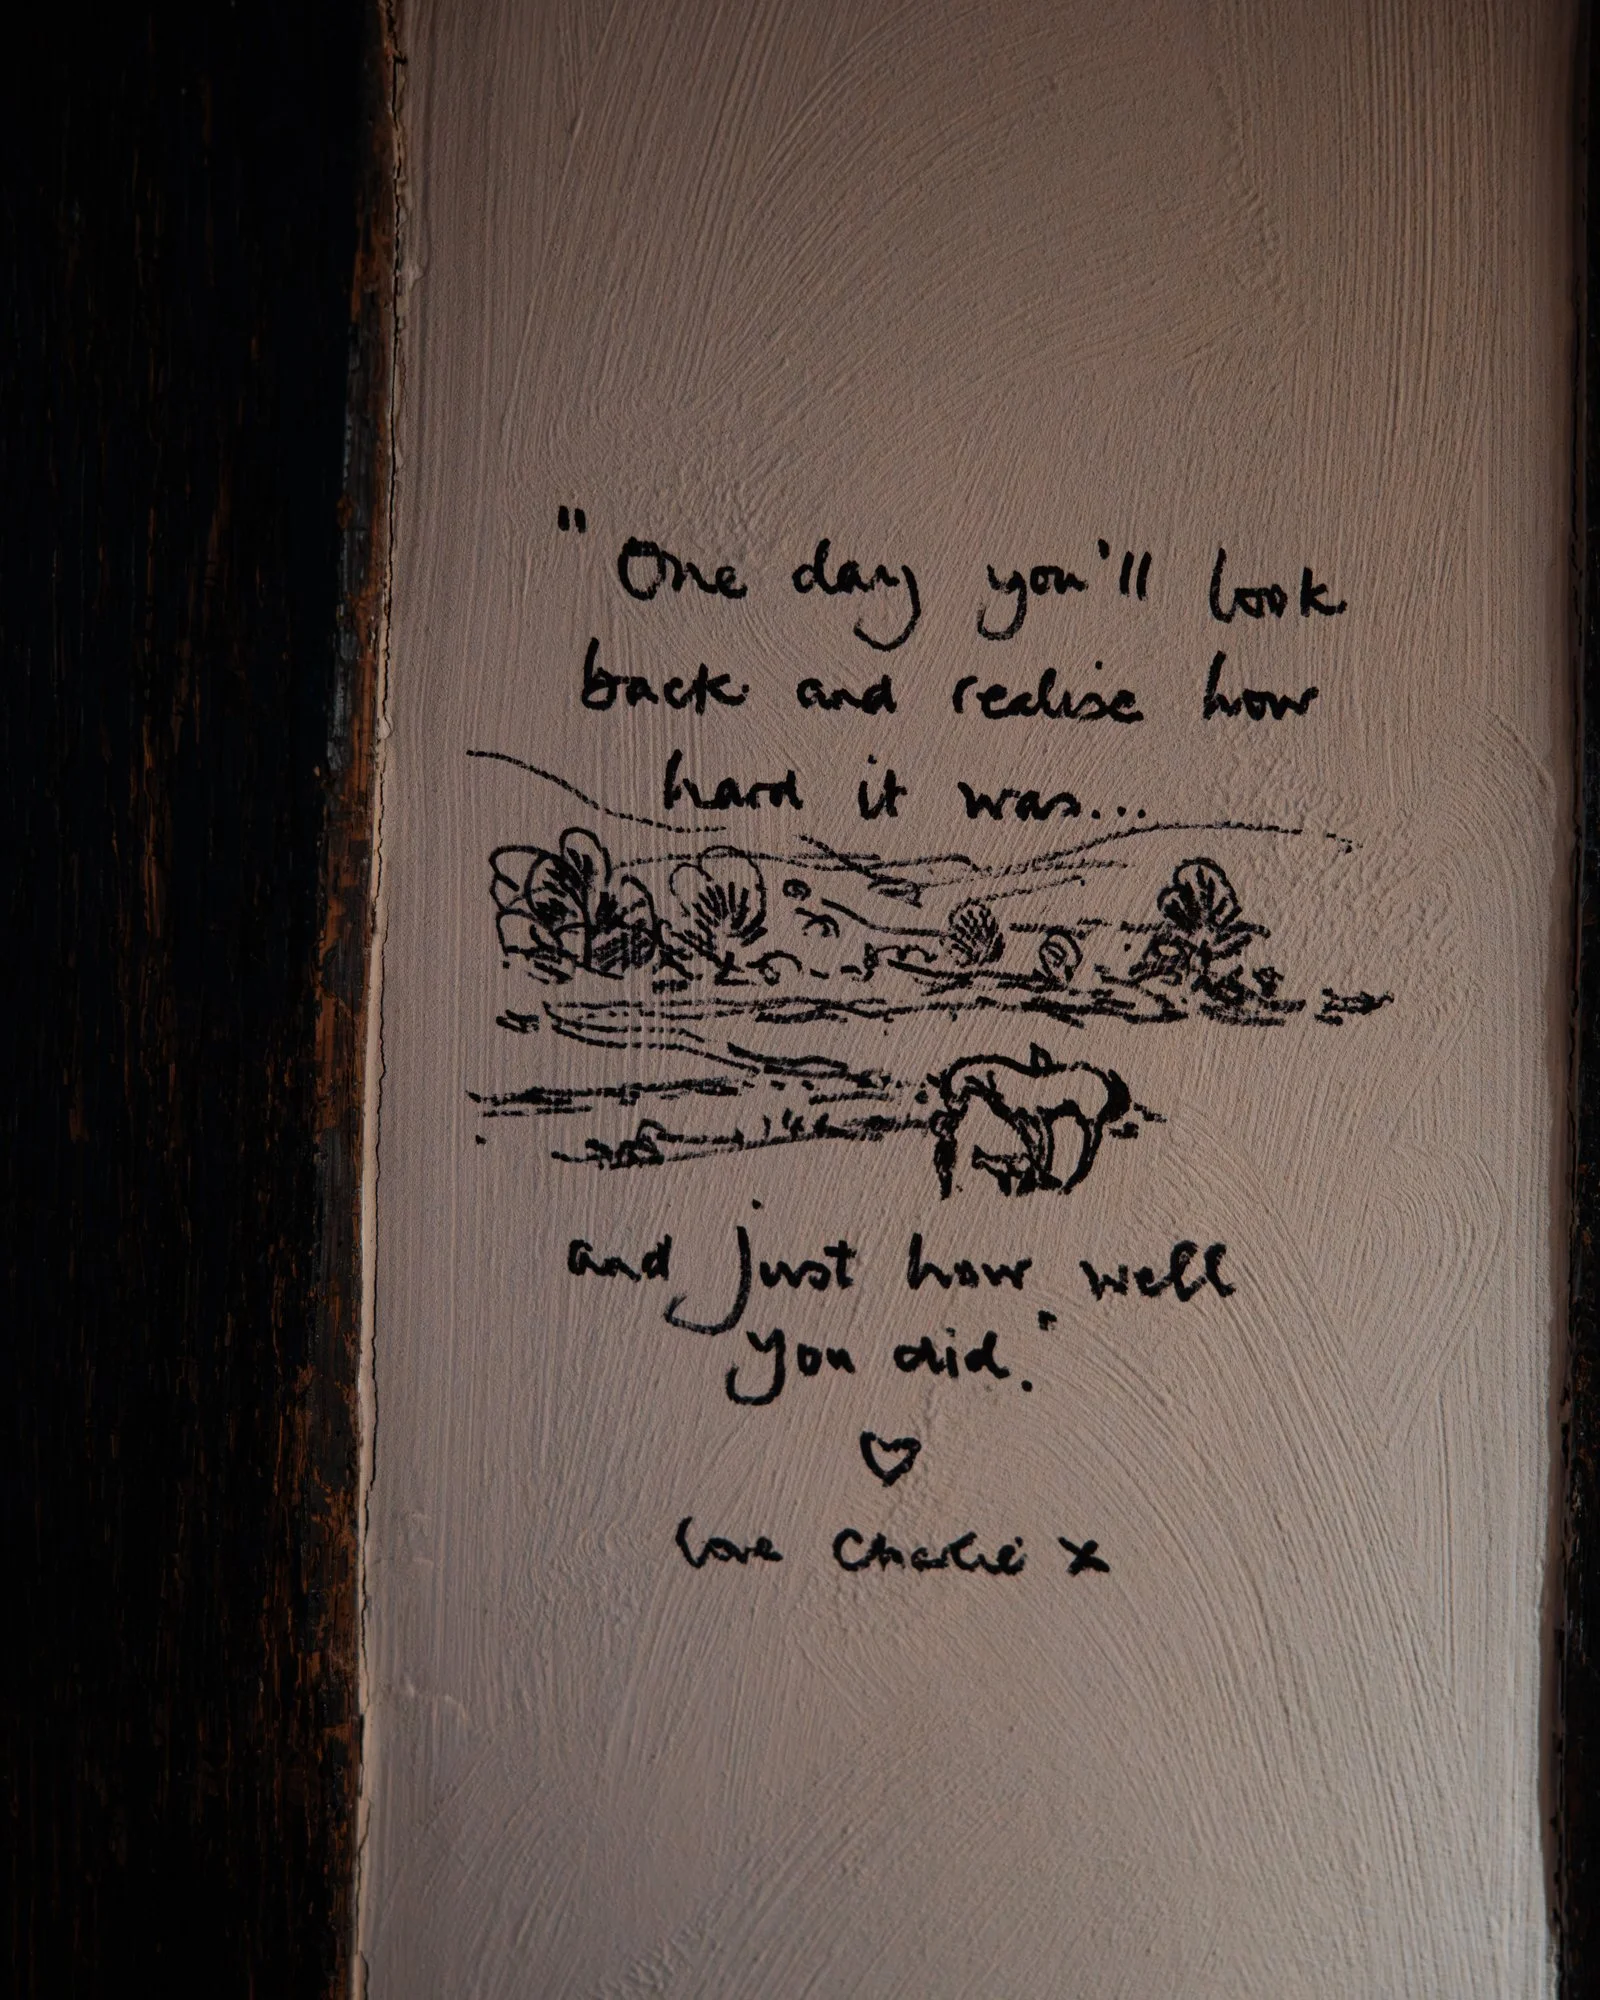 "One day you'll look
back and realise how
hard it was...
and just how well
you did."
love Charlie x